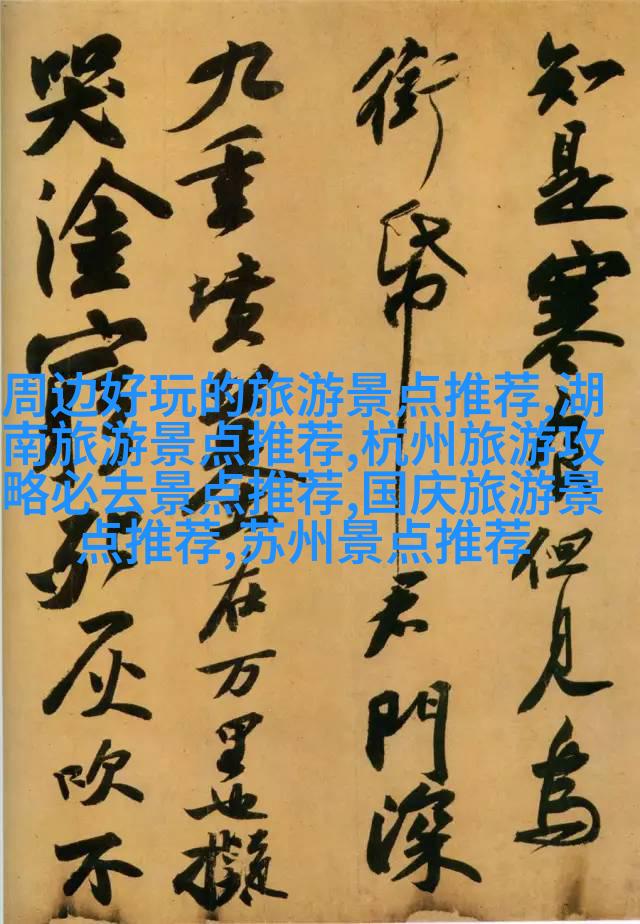 知是寒食但見烏
銜帋君門深
九重墳墓在万里也擬
哭塗窮死灰吹不
周边好玩的旅游景点推荐,湖
南旅游景点推荐,杭州旅游攻
略必去景点推荐,国庆旅游景
点推荐,苏州景点推荐